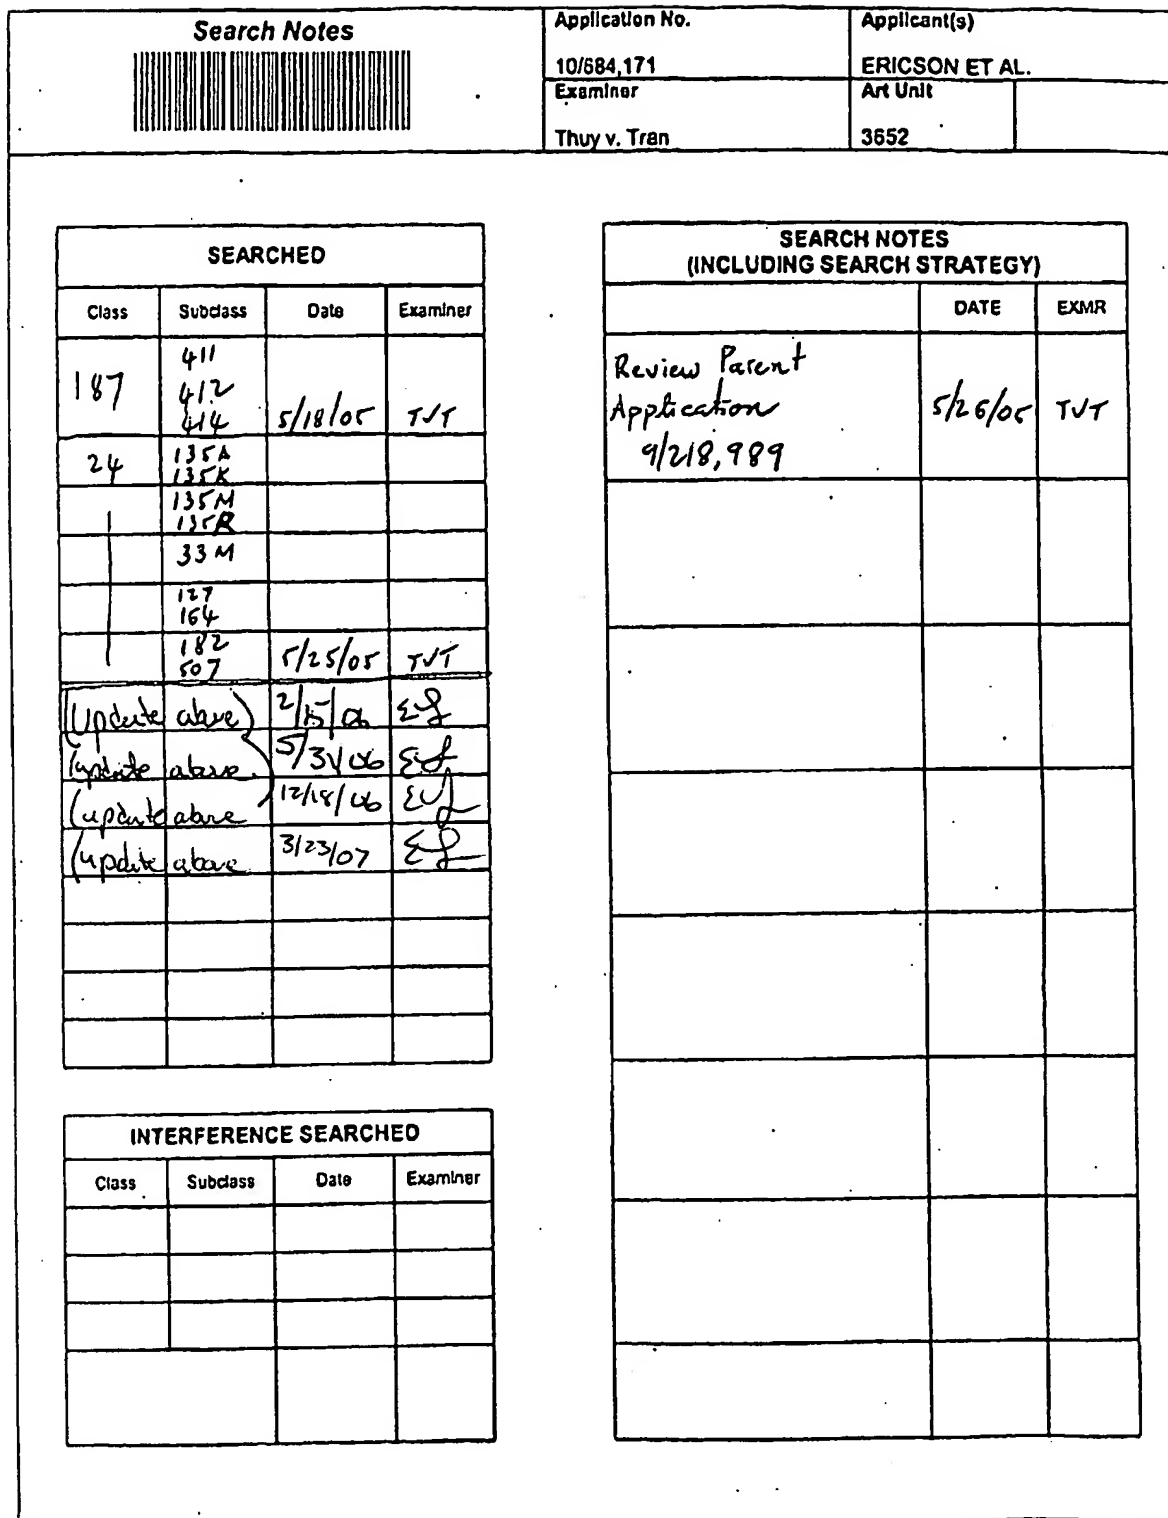 Search Notes
Application No.
Applicant(s)
10/684,171
ERICSON ET AL.
Examiner
Art Unit
Thuy v. Tran
3652
SEARCHED
Class Subclass Date Examiner
411
187 412
414 5/18/05 TVT
24 135A
135K
135M
135R
33M
127
164
182
507 5/25/05 TVT
(Update above) 2/15/06
(update above 5/31/06
(update above 12/18/06
(update above 3/23/07
INTERFERENCE SEARCHED
Class Subclass Date Examiner
SEARCH NOTES
(INCLUDING SEARCH STRATEGY)
DATE EXMR
Review Parent
Application 5/26/05 TVT
9/218,989